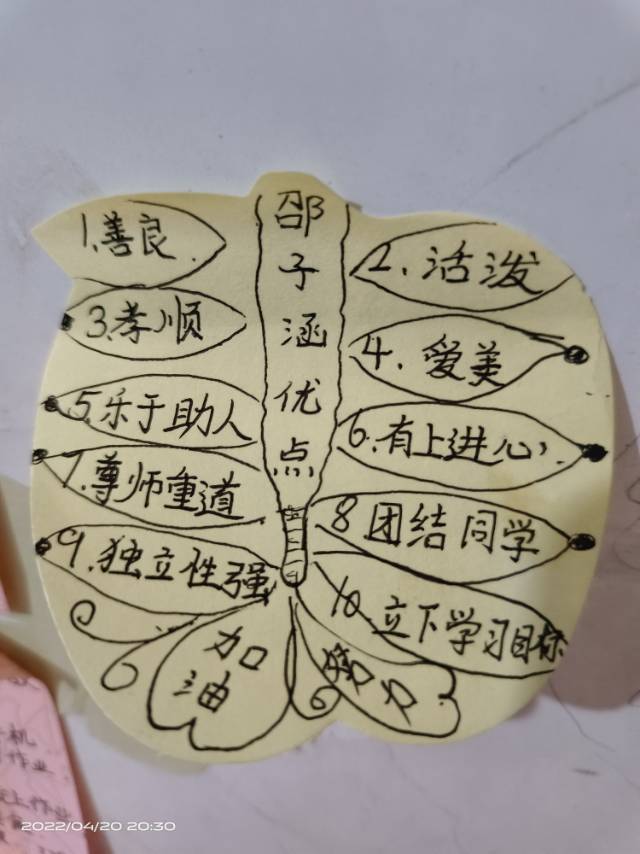 邵子涵优点
1.善良
2.活泼
3.孝顺
4.爱美
5.乐于助人
6.有上进心
7.尊师重道
8团结同学
9.独立性强
10.立下学习目标
加油
努力
机
作业
上作业
2022/04/20 20:30